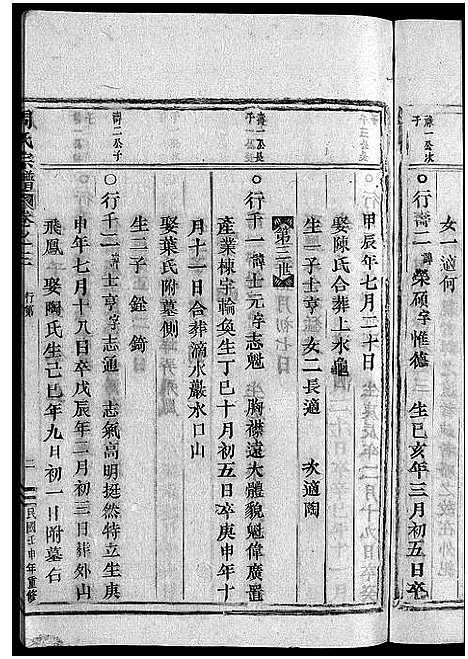 女一適何
齋一公次子
○行齋二諱榮碩字惟德 生己亥年三月初五日卒
甲辰年七月二十日
娶陳氏合葬上水龜
生一子士亨 女二長適 次適陶
第三世
齋一公長子
○行千一諱士元字志魁 生胸襟遠大體貌魁偉廣置
產業棟宇輪奐生丁巳十月初五日卒庚申年十
月十一日合葬滴水巖水口山
娶葉氏附墓側
生二子 銓 錡
齋二公子
○行千二諱士亨字志通 志氣高明挺然特立生庚
申年七月十八日卒戊辰年二月初三日葬外山
飛鳳 娶陶氏生己巳年九月初一日附墓右
周氏宗譜 卷之三 行第 二 民國壬申年重修